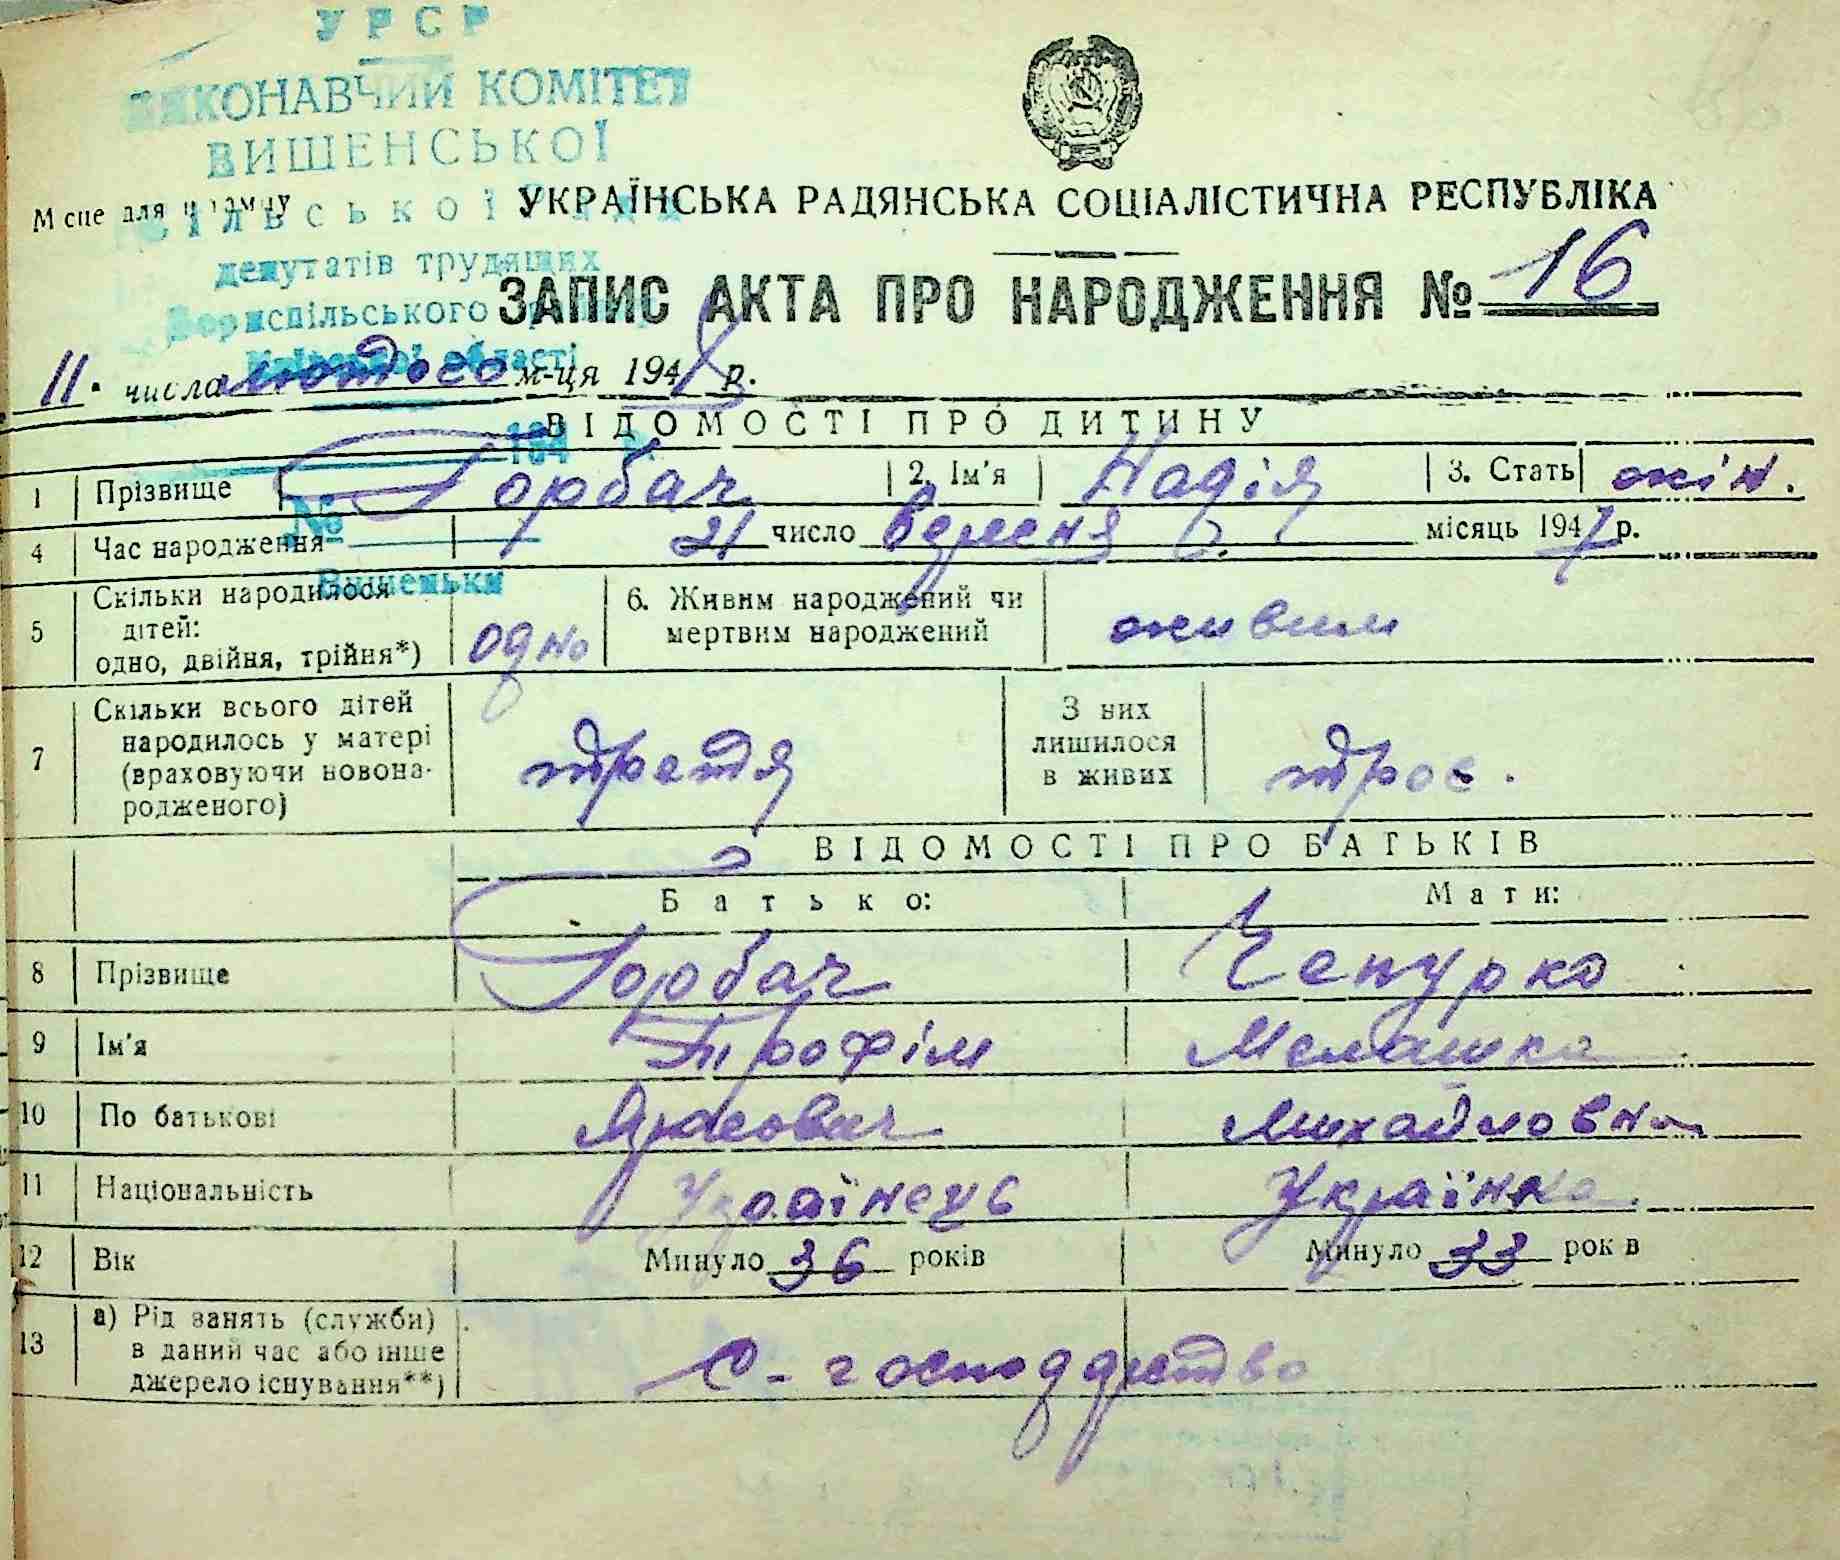 УРСР
ВИКОНАВЧИЙ КОМІТЕТ
ВИШЕНСЬКОЇ
Місце для штампу
СІЛЬСЬКОЇ
УКРАЇНСЬКА РАДЯНСЬКА СОЦІАЛІСТИЧНА РЕСПУБЛІКА
депутатів трудящих
Бориспільського
Київської області
ЗАПИС АКТА ПРО НАРОДЖЕННЯ № 16
11. числа лютого м-ця 194 р.
194
ВІДОМОСТІ ПРО ДИТИНУ
1 Прізвище Горбач 2. Ім'я Надія 3. Стать жін.
№
4 Час народження 21 число вересня місяць 1947 р.
Вишеньки
5 Скільки народилося дітей: одно, двійня, трійня*) одно 6. Живим народжений чи мертвим народжений живим
7 Скільки всього дітей народилось у матері (враховуючи новонародженого) третя З них лишилося в живих троє.
ВІДОМОСТІ ПРО БАТЬКІВ
Батько: Мати:
8 Прізвище Горбач Чепурко
9 Ім'я Трофім Мелашка
10 По батькові Михайловна
11 Національність Українець Українка.
12 Вік Минуло 36 років Минуло 33 років
13 а) Рід занять (служби) в даний час або інше джерело існування**) с-господарство